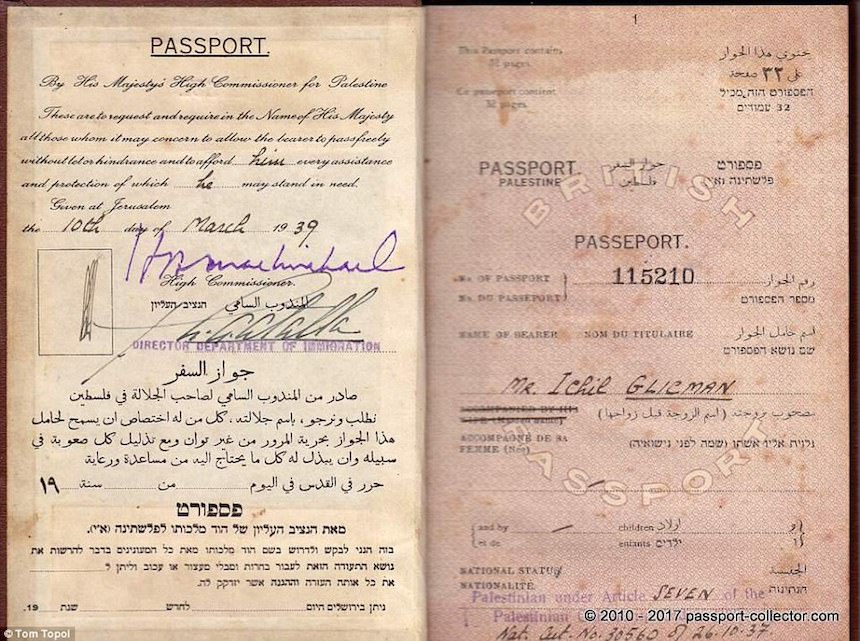 PASSPORT.
By His Majesty's High Commissioner for Palestine
These are to request and require in the Name of His Majesty
all those whom it may concern to allow the bearer to pass freely
without let or hindrance and to afford him every assistance
and protection of which he may stand in need.
Given at Jerusalem
the 10th day of March 1939
High Commissioner.
المندوب السامي הנציב העליון
DIRECTOR DEPARTMENT OF IMMIGRATION
جواز السفر
صادر من المندوب السامي لصاحب الجلالة في فلسطين
نطلب ونرجو، باسم جلالته، كل من له اختصاص ان يسمح لحامل
هذا الجواز بحرية المرور من غير توان ومع تذليل كل صعوبة في
سبيله وان يبذل له كل ما يحتاج اليه من مساعدة ورعاية
حرر في القدس في اليوم من سنة ١٩
פספורט
מאת הנציב העליון של הוד מלכותו לפלשתינה (א״י).
בזה הנני לבקש ולדרוש בשם הוד מלכותו מאת כל המעונינים בדבר להרשות את
נושא התעודה הזאת לעבור בחרות ומבלי מעצור או עכוב וליתן ל
את כל אותה העזרה וההגנה אשר יזדקק לה.
ניתן בירושלים היום לחדש שנת 19.
© Tom Topol
1
This Passport contains
32 pages.
Ce passeport contient
32 pages.
يحتوي هذا الجواز
على ٣٢ صفحة
הפספורט הזה מכיל
32 עמודים
PASSPORT. جواز السفر פספורט
PALESTINE فلسطين פלשתינה (א״י)
BRITISH
PASSEPORT.
No. OF PASSPORT رقم الجواز
115210
No. DU PASSEPORT מספר הפספורט
NAME OF BEARER NOM DU TITULAIRE اسم حامل الجواز
שם נושא הפספורט
Mr. Ichil GLICMAN
ACCOMPANIED BY HIS مصحوب بزوجته (اسم الزوجة قبل زواجها)
WIFE (Maiden name)
ACCOMPAGNÉ DE SA נלוית אליו אשתו (שמה לפני נישואיה)
FEMME (Née)
PASSPORT
and by children اولاد و
et de enfants ילדים ו
NATIONAL STATUS الجنسية
NATIONALITÉ נתינות
Palestinian under Article SEVEN of the
Palestinian
© 2010 - 2017 passport-collector.com
Nat. Cert. No. 30560 of 26.10.37